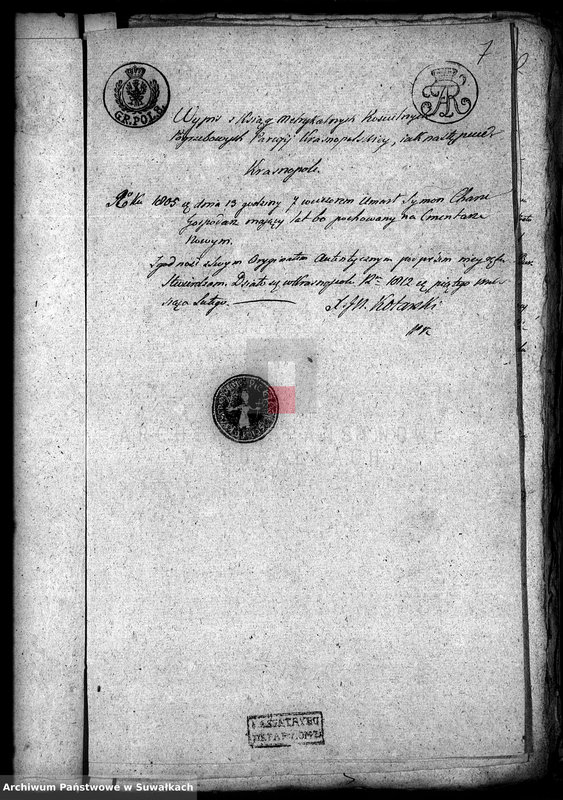 7
GR. POL. 8
AR
Wypis z Ksiąg Metrykalnych Kościelnych
Pogrzebowych Parafij Krasnopolskiey, iak następuie
Krasnopole.
Roku 1805 dnia 13 godziny 7 wieczorem Umarł Symon
Gospodarz maiący lat 60 pochowany na Cmentarzu
Nowym.
Zgodność z swym Oryginałem Autentycznym podpisem
Stwierdzam. Działo się w Krasnopolu Rku 1812 piątego
siąca Lutego.
X. J. N. Kotarski
Archiwum Państwowe w Suwałkach